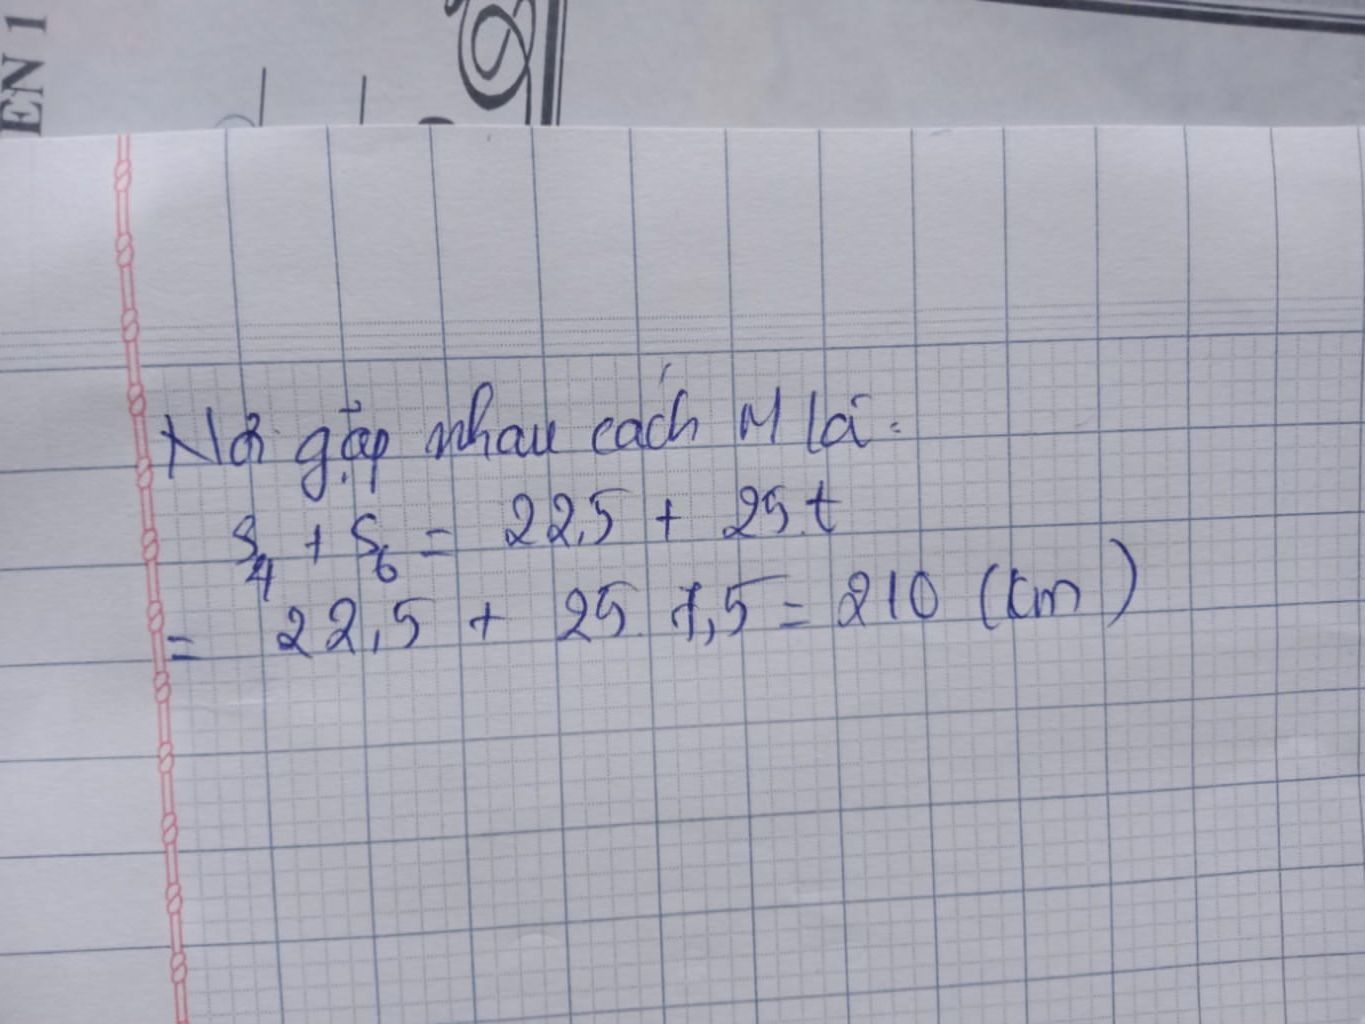 EN 1
Nơi gặp nhau cách M là:
S₄ + S₆ = 22,5 + 25.t
= 22,5 + 25.7,5 = 210 (km)